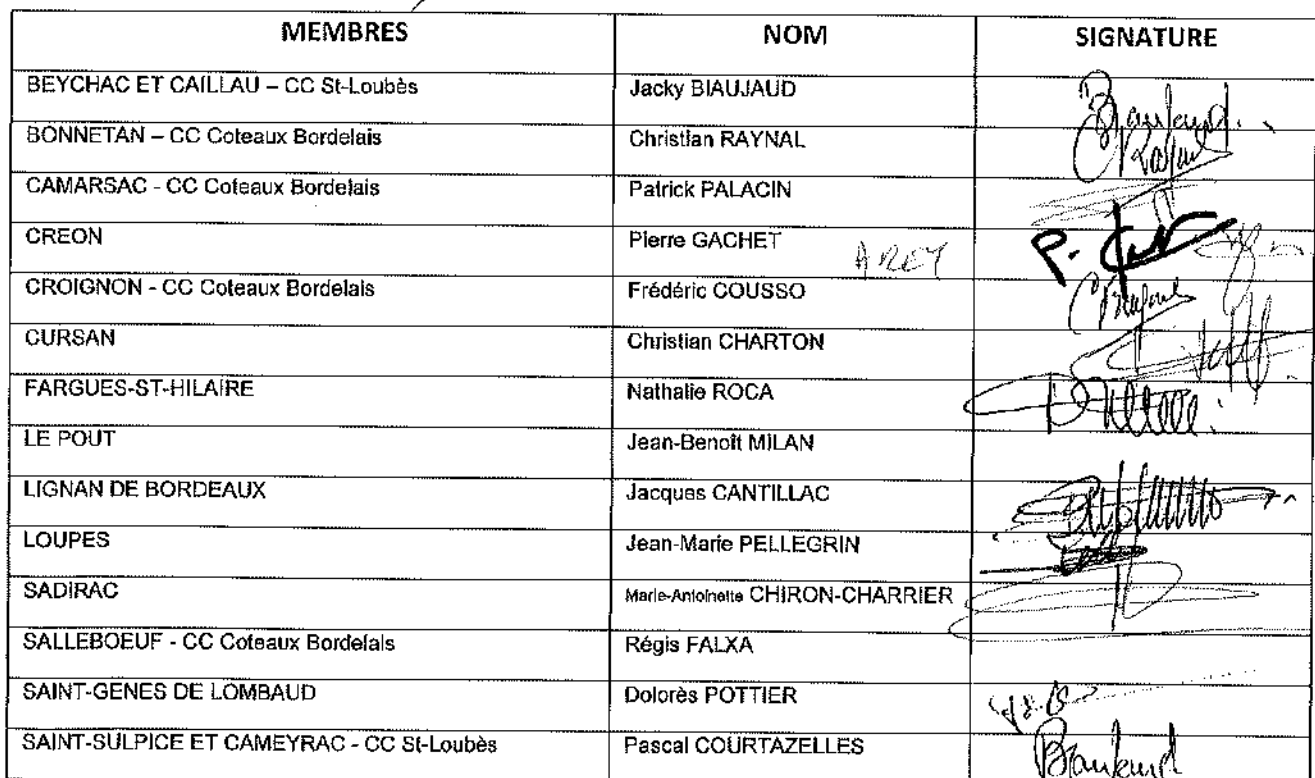 MEMBRES NOM SIGNATURE
BEYCHAC ET CAILLAU – CC St-Loubès Jacky BIAUJAUD
BONNETAN – CC Coteaux Bordelais Christian RAYNAL
CAMARSAC - CC Coteaux Bordelais Patrick PALACIN
CREON Pierre GACHET A REY
CROIGNON - CC Coteaux Bordelais Frédéric COUSSO
CURSAN Christian CHARTON
FARGUES-ST-HILAIRE Nathalie ROCA
LE POUT Jean-Benoît MILAN
LIGNAN DE BORDEAUX Jacques CANTILLAC
LOUPES Jean-Marie PELLEGRIN
SADIRAC Marie-Antoinette CHIRON-CHARRIER
SALLEBOEUF - CC Coteaux Bordelais Régis FALXA
SAINT-GENES DE LOMBAUD Dolorès POTTIER
SAINT-SULPICE ET CAMEYRAC - CC St-Loubès Pascal COURTAZELLES